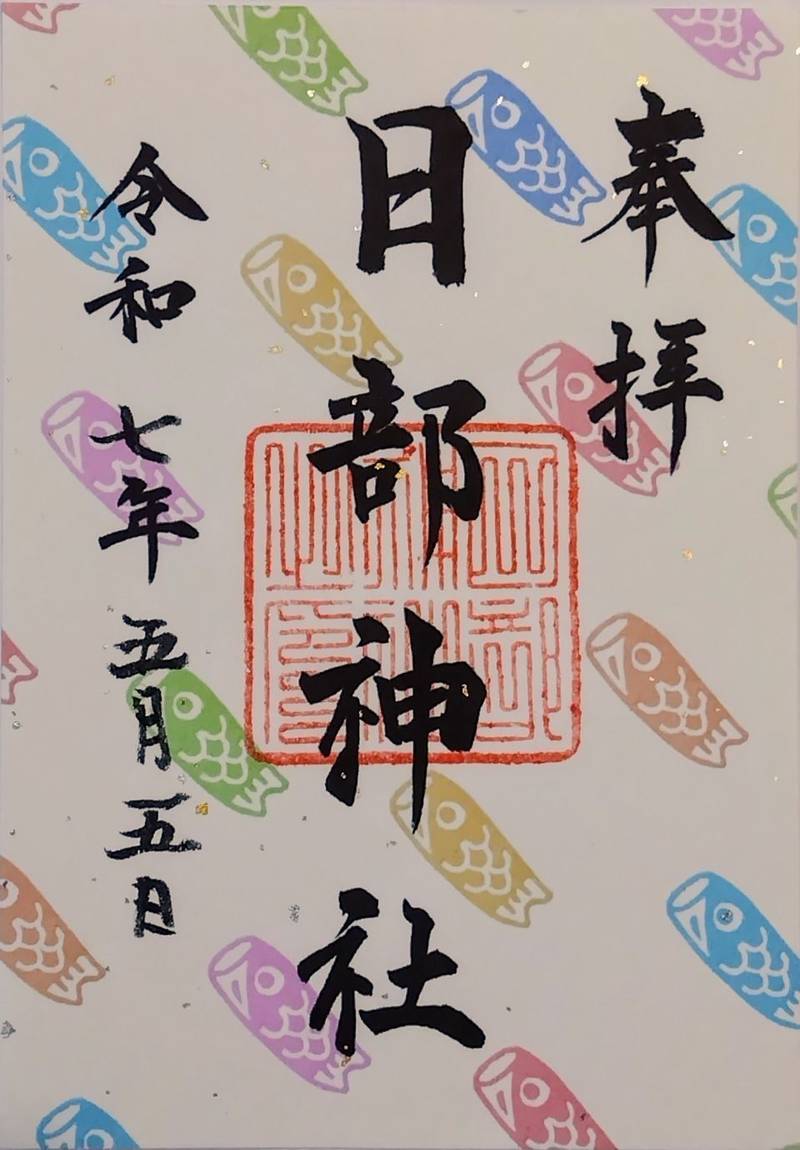 奉拝
日部神社
令和七年五月五日